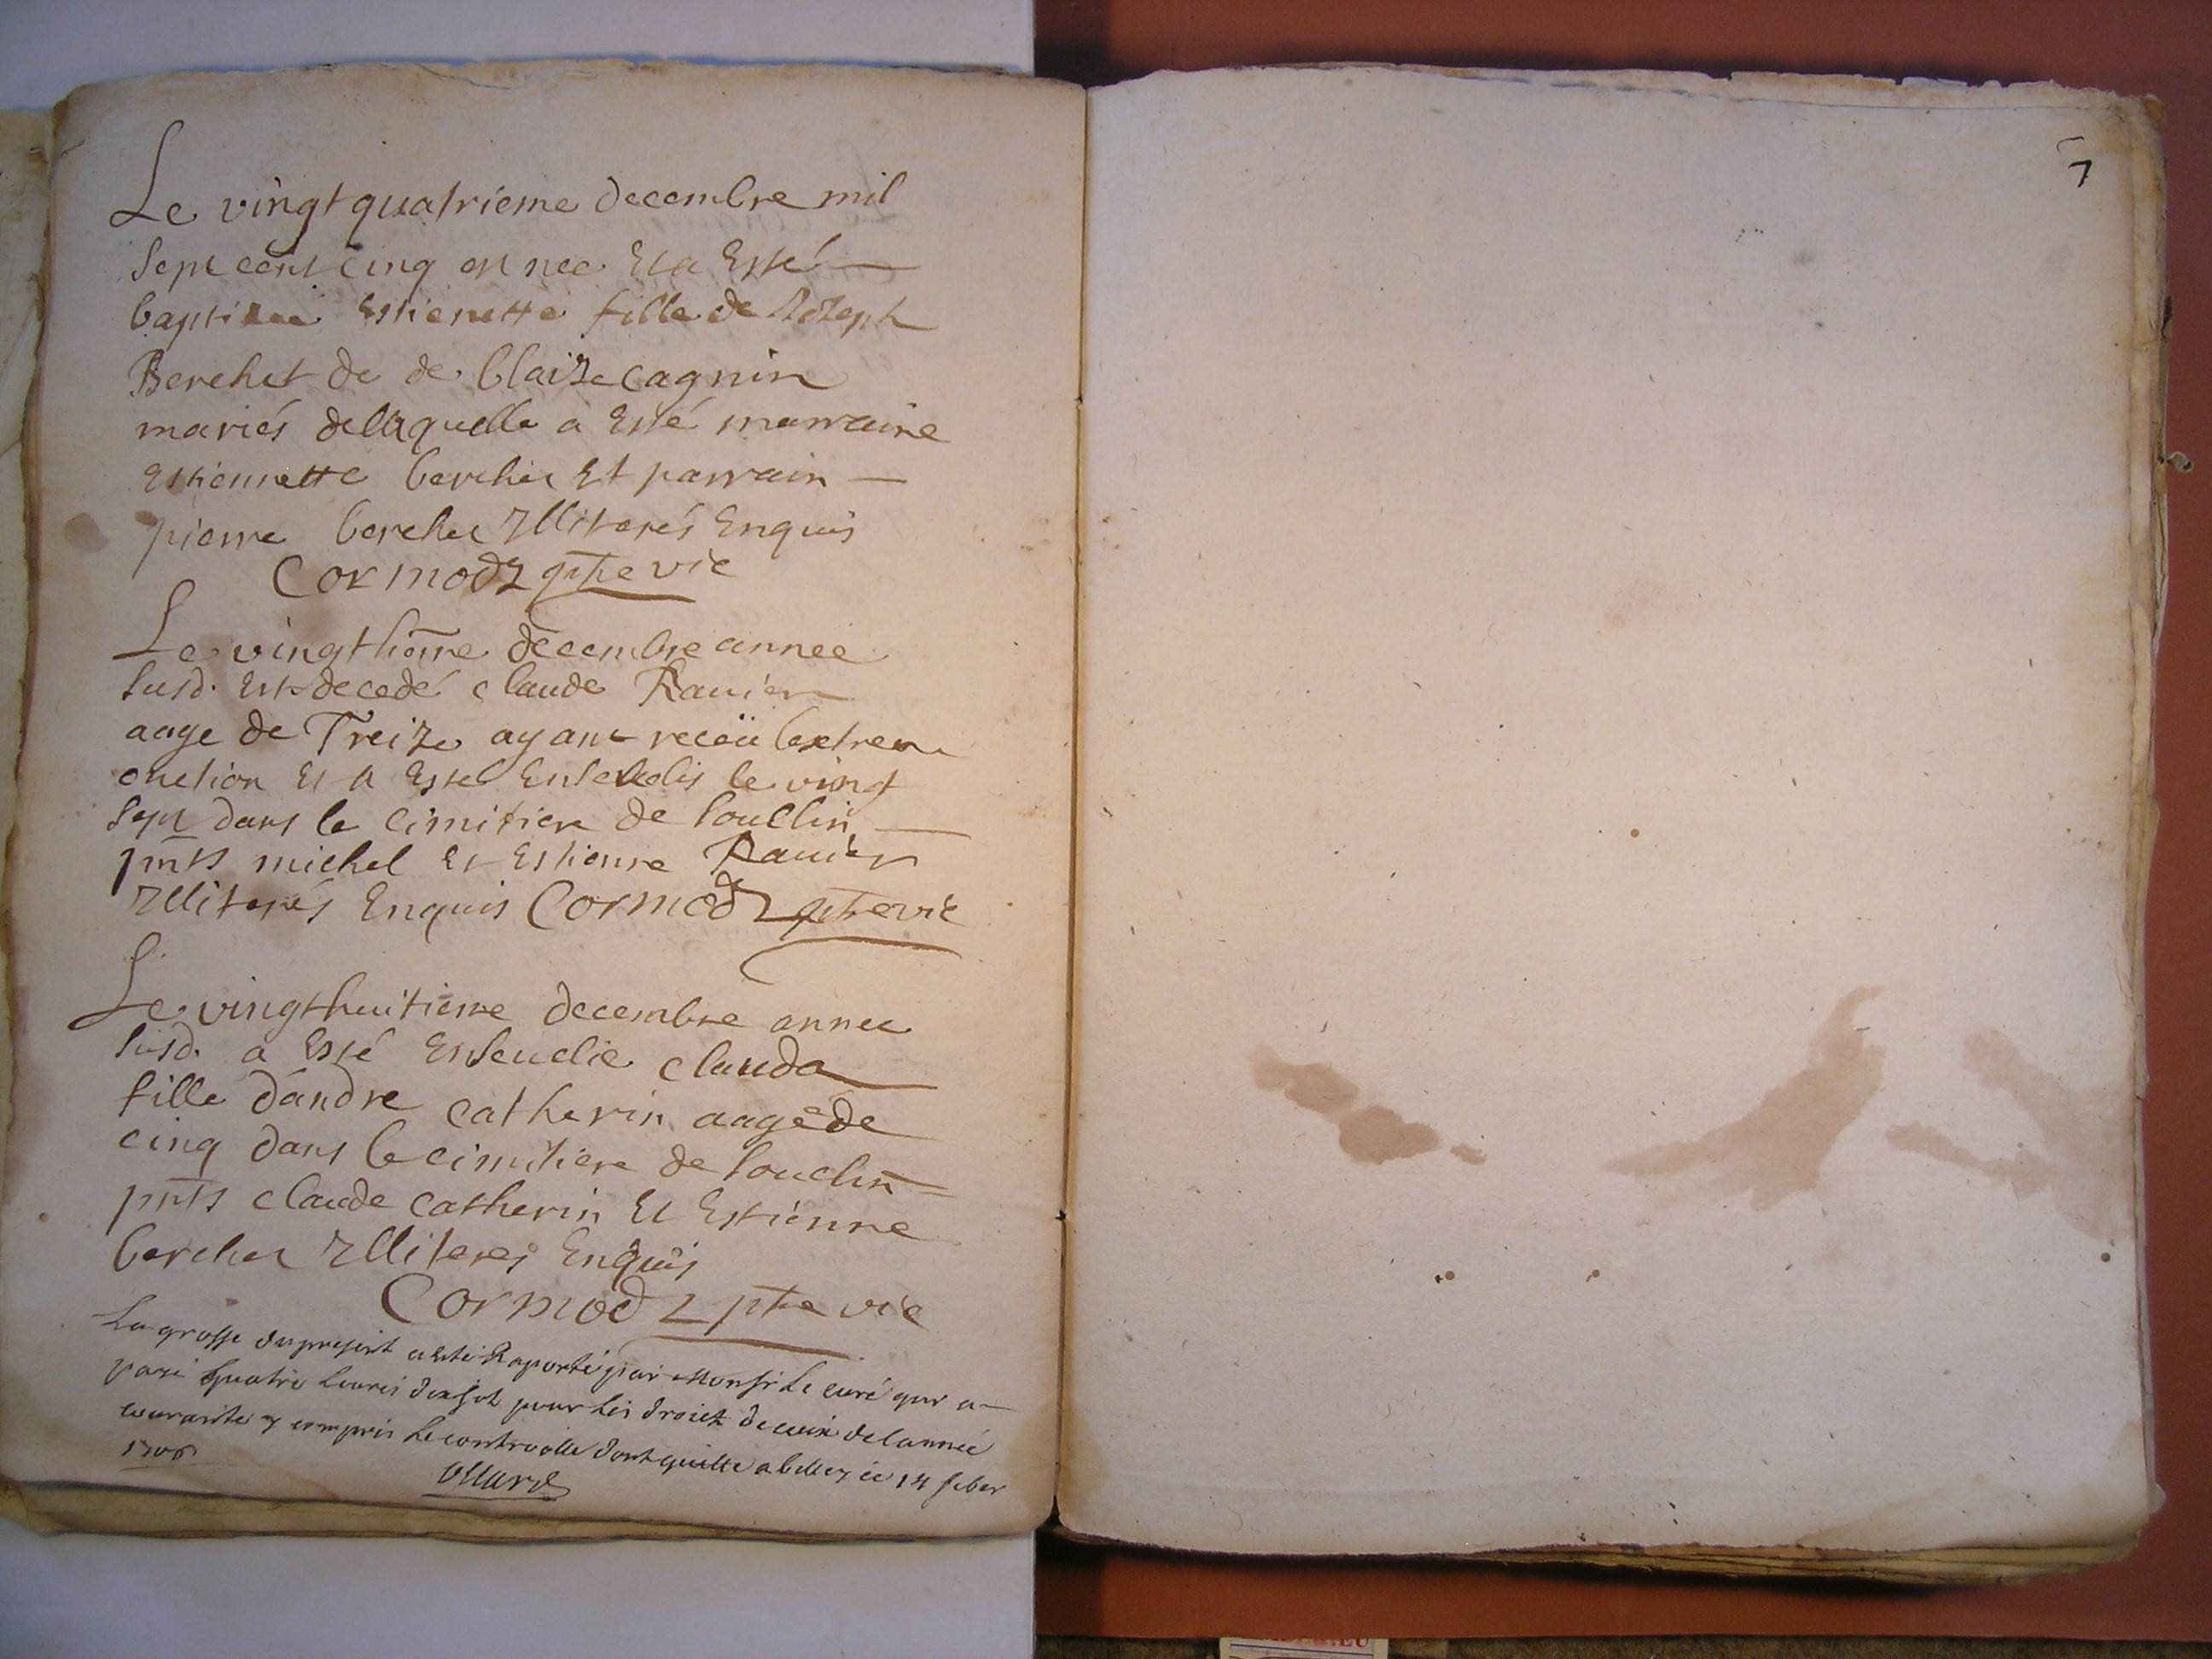 Le vingt quatrieme decembre mil
sept cent cinq est nee Et a Esté
baptisee Estienette fille de Ioseph
Berchet de de blaize cagnin
mariés de laquelle a Esté marraine
Estiennette berchet Et parrain
pierre berchet Illiterés Enquis
Cormodz ptre vic
Le vingt decembre annee
susd. Est decedé claude Ravier
aage de Treize ayant receü lextreme
onction Et A Esté Ensevelis le vingt
sept dans le cimitiere de souclin
pnts michel Et Estienne Ravier
Illiterés Enquis Cormodz ptre vic
Le vingthuitieme decembre annee
susd. a Esté Ensevelie clauda
fille dandre catherin aagé de
cinq dans le cimitiere de souclin
pnts claude catherin Et Estienne
berchet Illiteres Enquis
Cormodz ptre vic
La grosse du present a esté Raporté par Monsr Le curé qui a
paié quatre livres dix sol pour les droict de celui de lannée
courante y compris le controolle dont quitte a belley ce 14 feber
1706
7
.EU